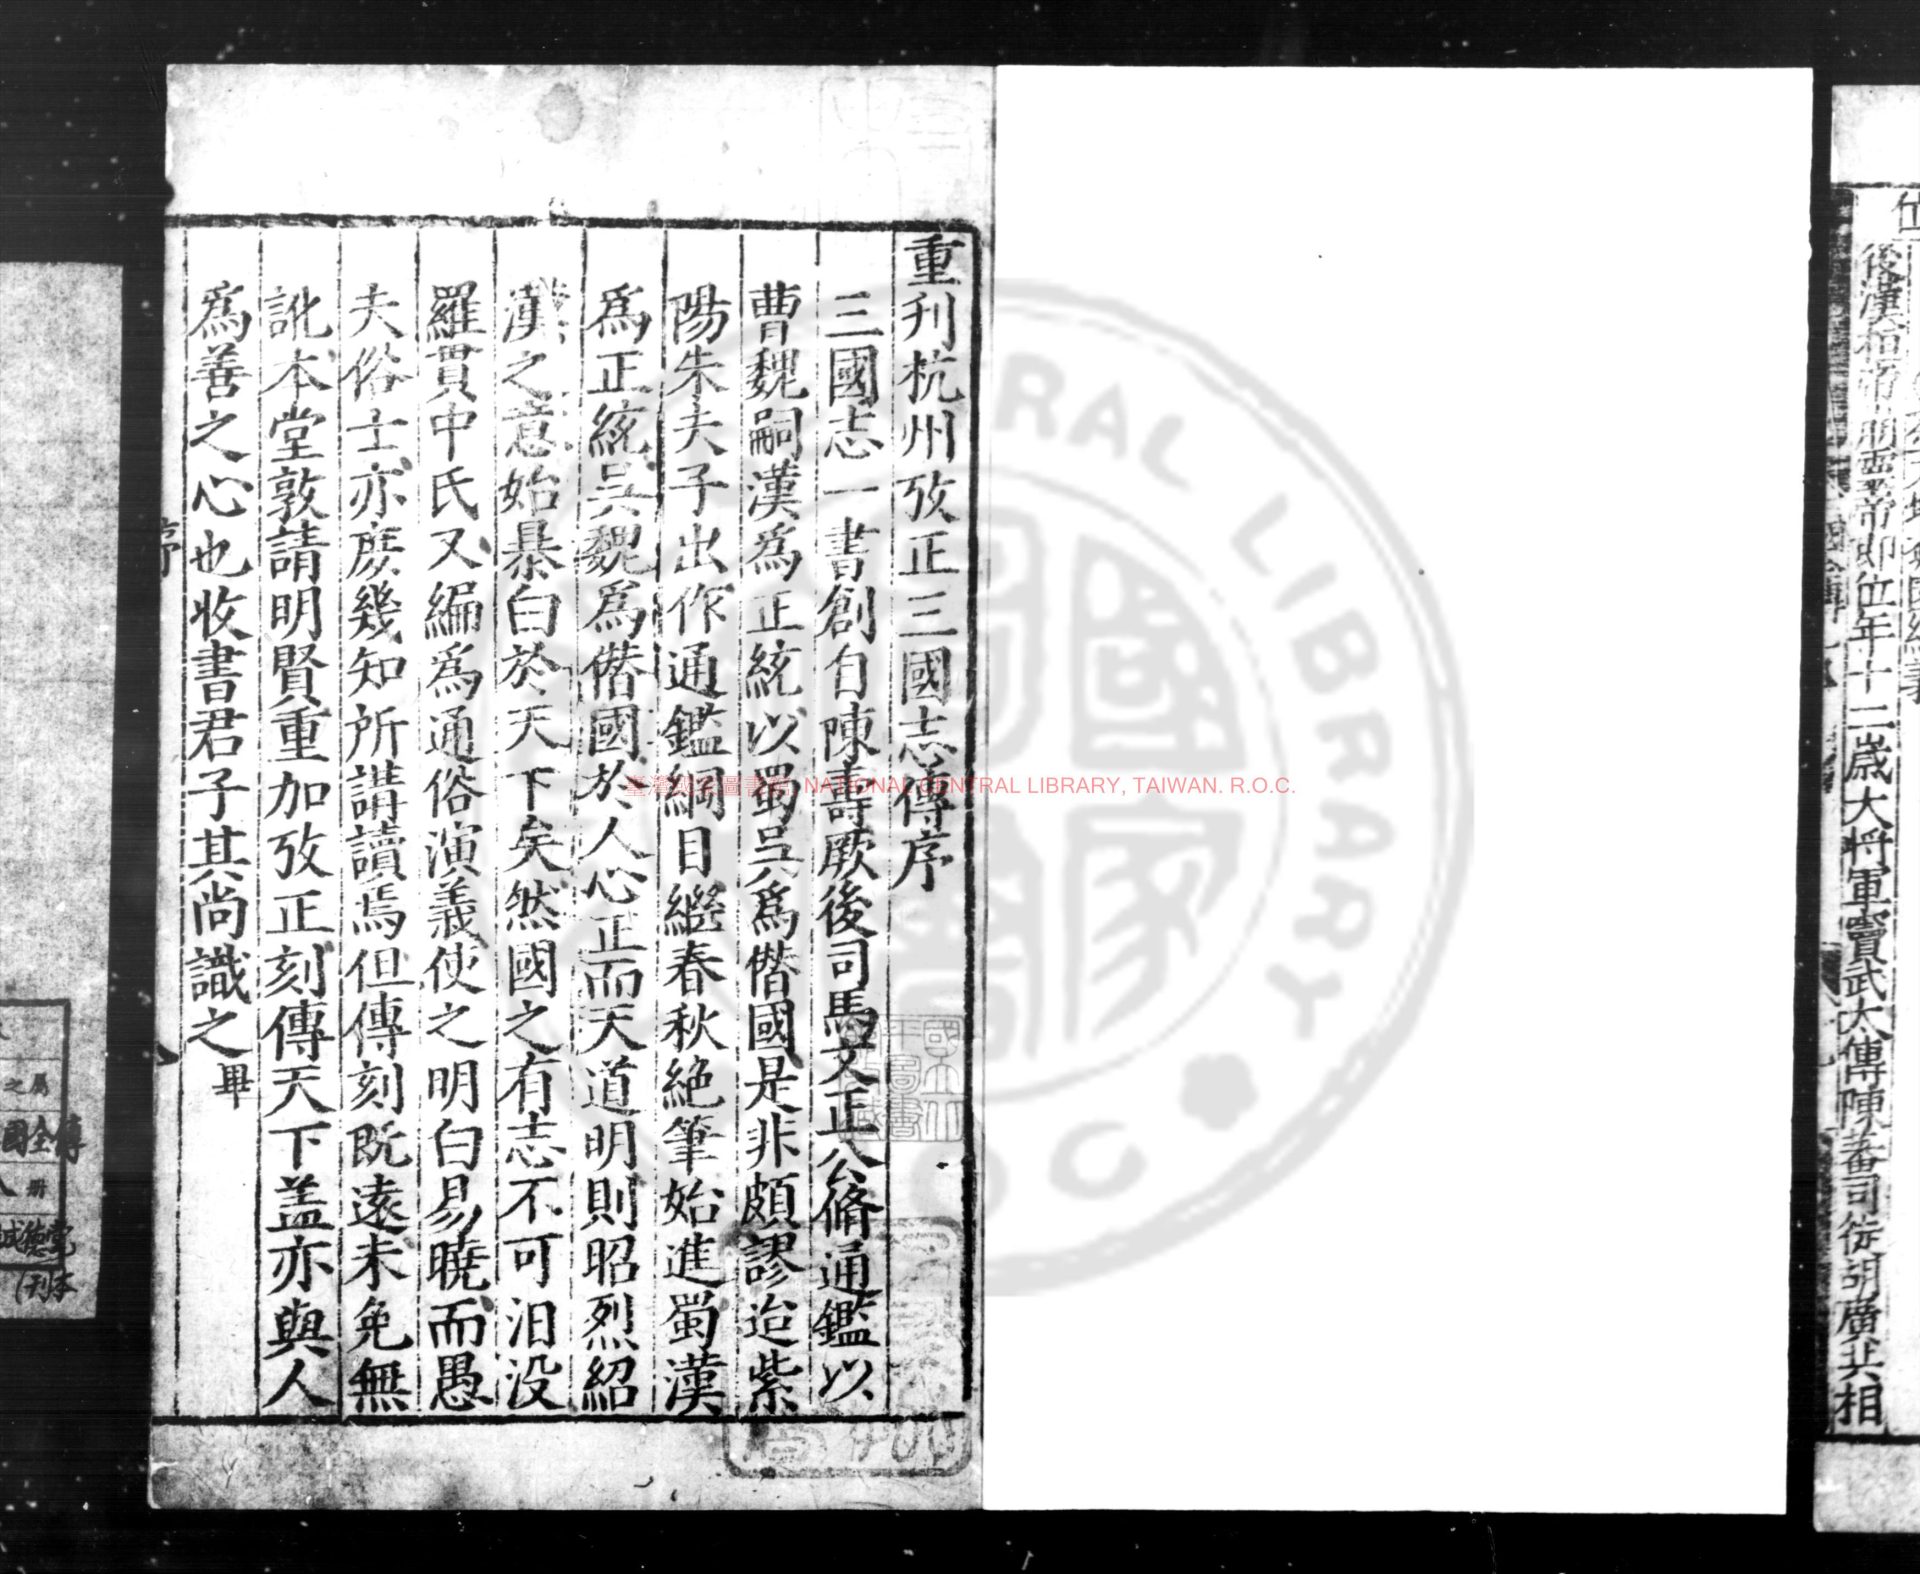 重刋杭州攷正三國志傳序
三國志一書創自陳壽厥後司馬文正公脩通鑑以
曹魏嗣漢為正統以蜀吳為僭國是非頗謬迨紫
陽朱夫子出作通鑑綱目繼春秋絶筆始進蜀漢
為正統吳魏為僭國於人心正而天道明則昭烈紹
漢之意始暴白於天下矣然國之有志不可汨没
羅貫中氏又編為通俗演義使之明白易曉而愚
夫俗士亦庶幾知所講讀焉但傳刻既遠未免無
訛本堂敦請明賢重加攷正刻傳天下盖亦與人
為善之心也收書君子其尚識之畢
序
後漢桓帝崩靈帝即位年十二歲大將軍竇武太傅陳蕃司徒胡廣共相
臺灣國家圖書館, NATIONAL CENTRAL LIBRARY, TAIWAN. R.O.C.